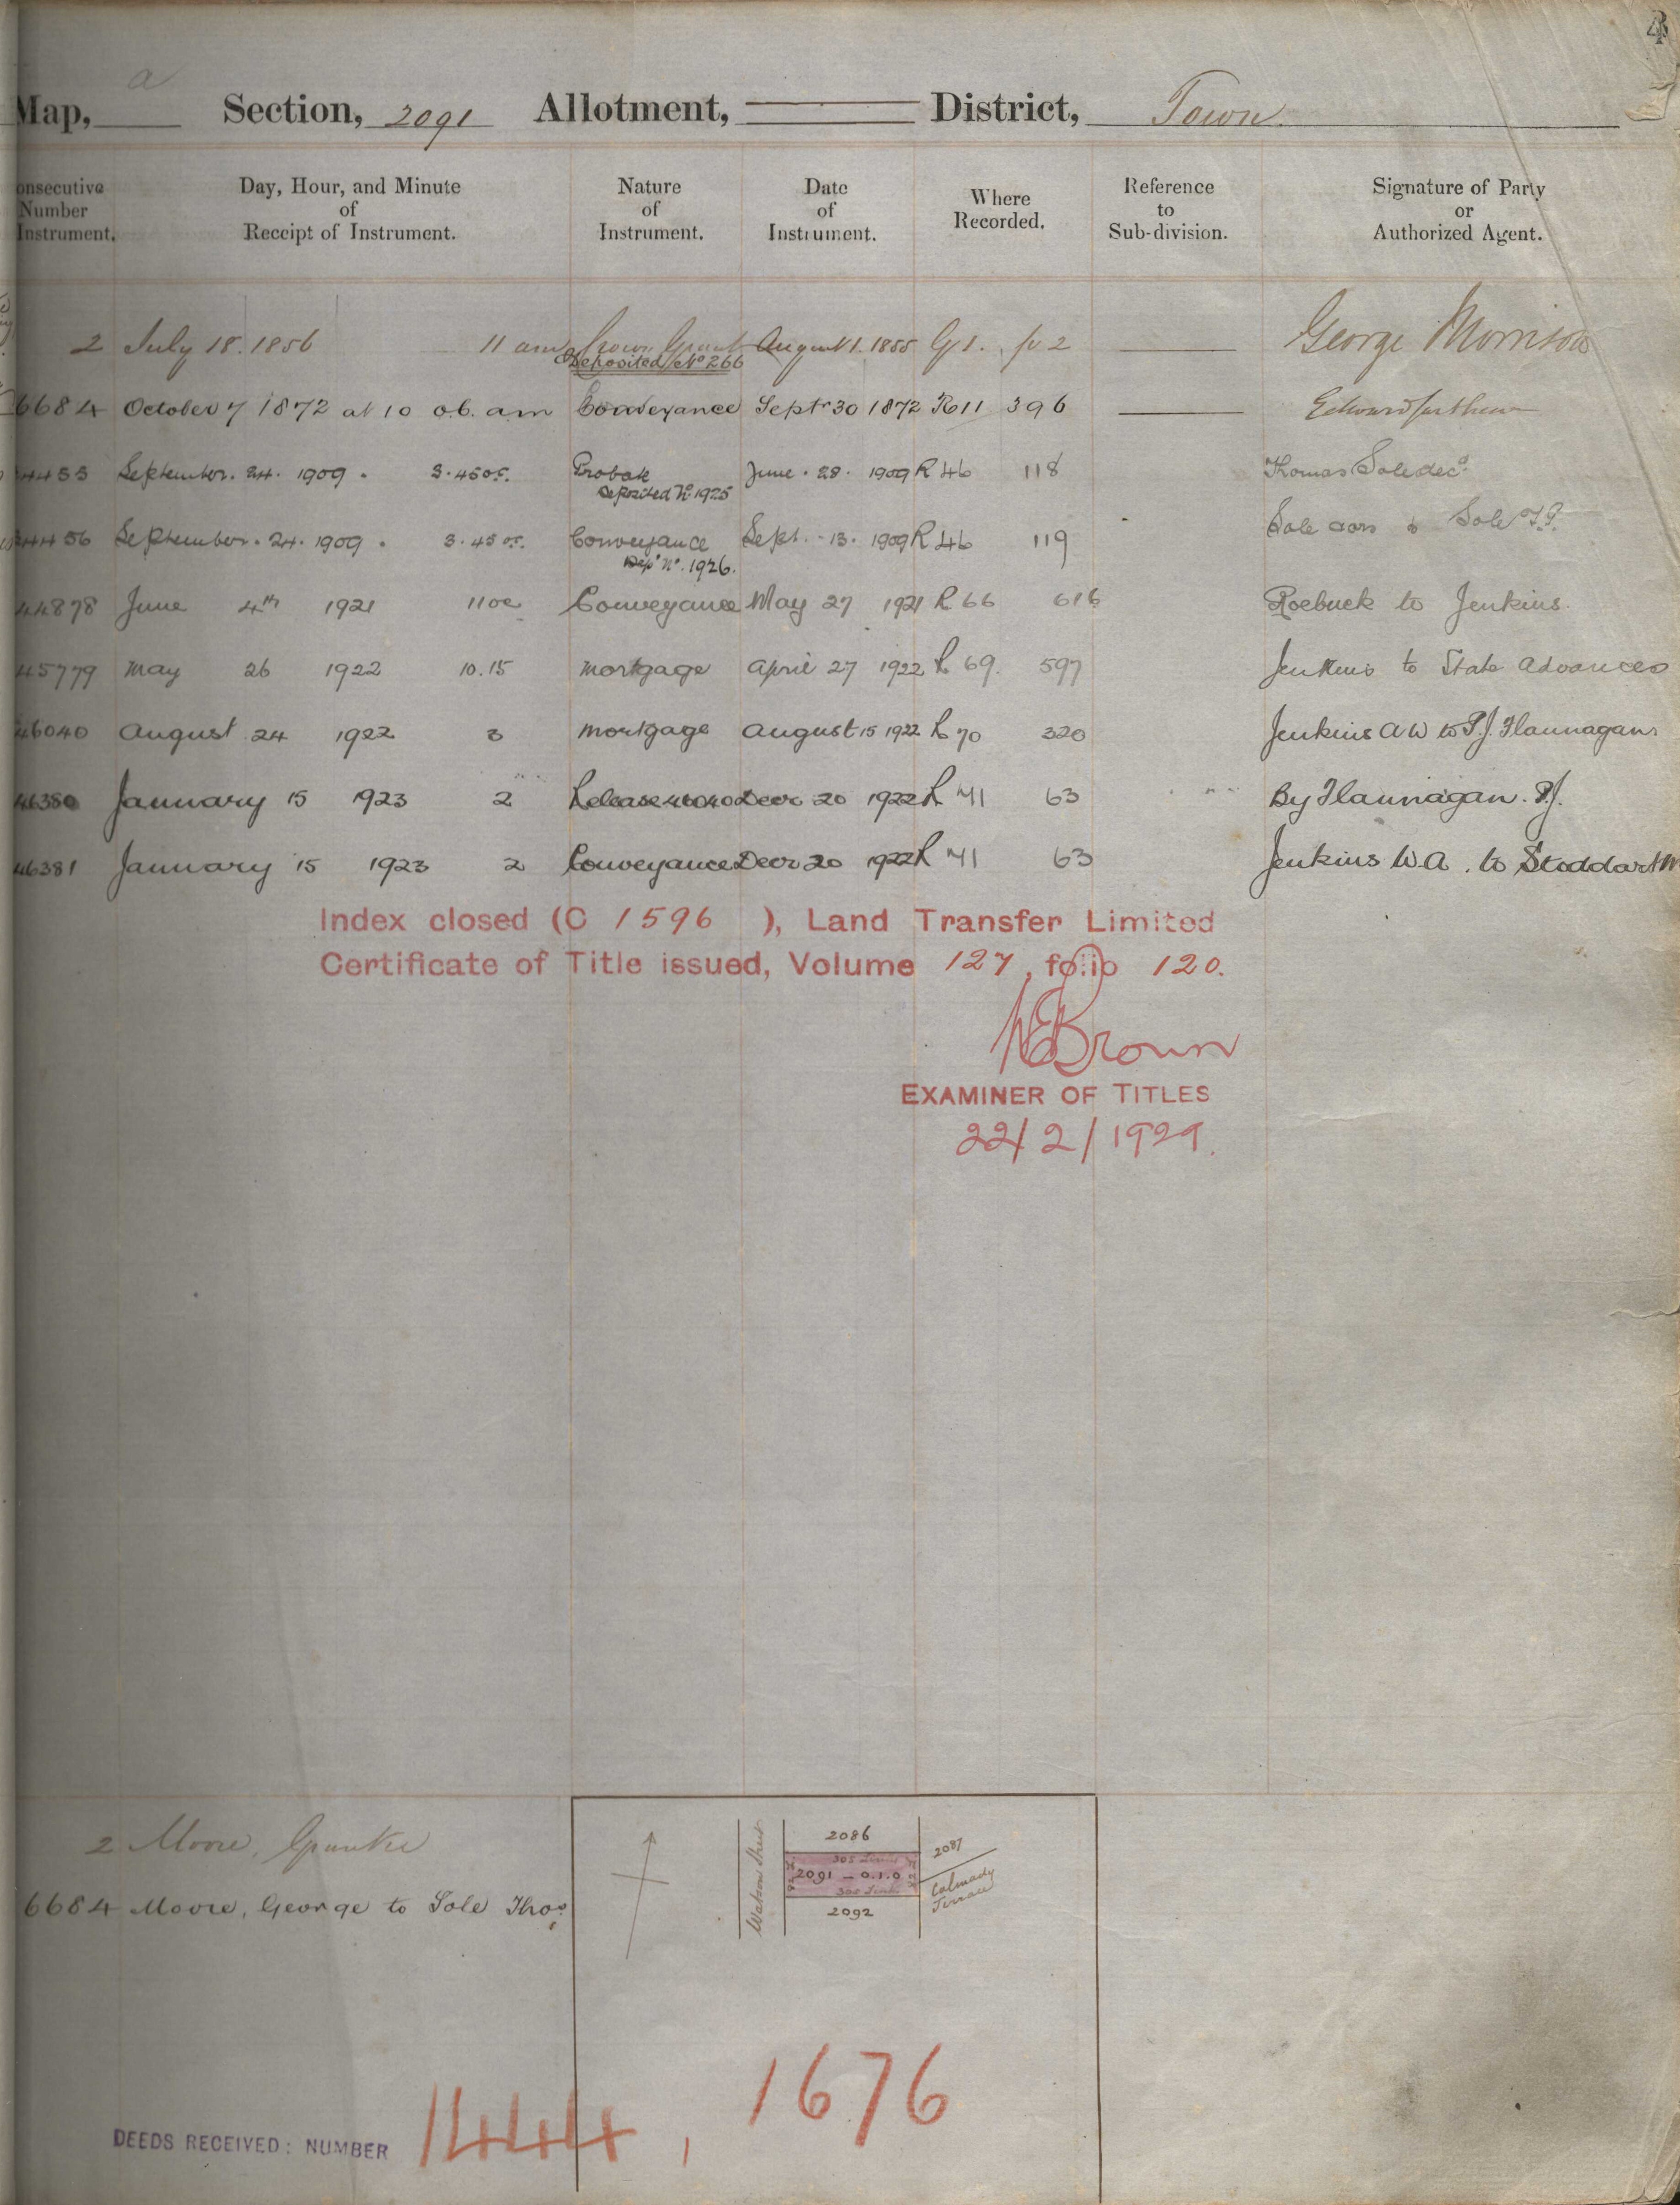 4
a
Map, Section, 2091 Allotment, District, Town
onsecutive Number Instrument. Day, Hour, and Minute of Receipt of Instrument. Nature of Instrument. Date of Instrument. Where Recorded. Reference to Sub-division. Signature of Party or Authorized Agent.
2 July 18. 1856 11 am Crown Grant August 1. 1855 G1. fo 2 George Morrison
Deposited No 266
6684 October 7 1872 at 10 o.c. am Conveyance Septr 30 1872 R11 396 Edward
4455 September. 24. 1909. 3.45 Probate June. 28. 1909 R 46 118 Thomas Sole decd
Deposited No 1925
4456 September. 24. 1909. 3.45 Conveyance Sept. 13. 1909 R 46 119 Sole & Sole
Dep No. 1926.
44878 June 4th 1921 11oc Conveyance May 27 1921 R 66 616 Roebuck to Jenkins.
45779 May 26 1922 10.15 Mortgage April 27 1922 R 69. 597 Jenkins to State Advances
46040 August 24 1922 3 Mortgage August 15 1922 R 70 320 Jenkins A W to P.J. Flannagan
46380 January 15 1923 2 Release 46040 Decr 20 1922 R 71 63 By Flannagan. P.J.
46381 January 15 1923 2 Conveyance Decr 20 1922 R 71 63 Jenkins W.A. to Stoddart
Index closed (C 1596 ), Land Transfer Limited
Certificate of Title issued, Volume 127, folio 120.
Brown
EXAMINER OF TITLES
22/2/1929.
2 Moore, Grantee
6684 Moore, George to Sole Thos
Watson Street
2086
2087
305 Links
2091 - 0.1.0
305 Links
2092
Calmady Terrace
1676
DEEDS RECEIVED: NUMBER 1444,